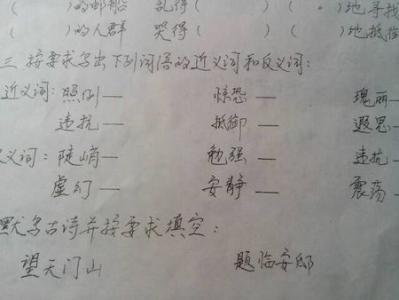 ( )的邮船 乱得( ) ( )地寻找
( )的人群 哭得( ) ( )地抵抗
三 按要求写出下列词语的近义词和反义词:
近义词: 照例— 惊恐— 瑰丽—
违抗— 抵御— 遐思—
义词: 陡峭— 勉强— 违抗—
虚幻— 安静— 震荡—
默写古诗并按要求填空:
望天门山 题临安邸